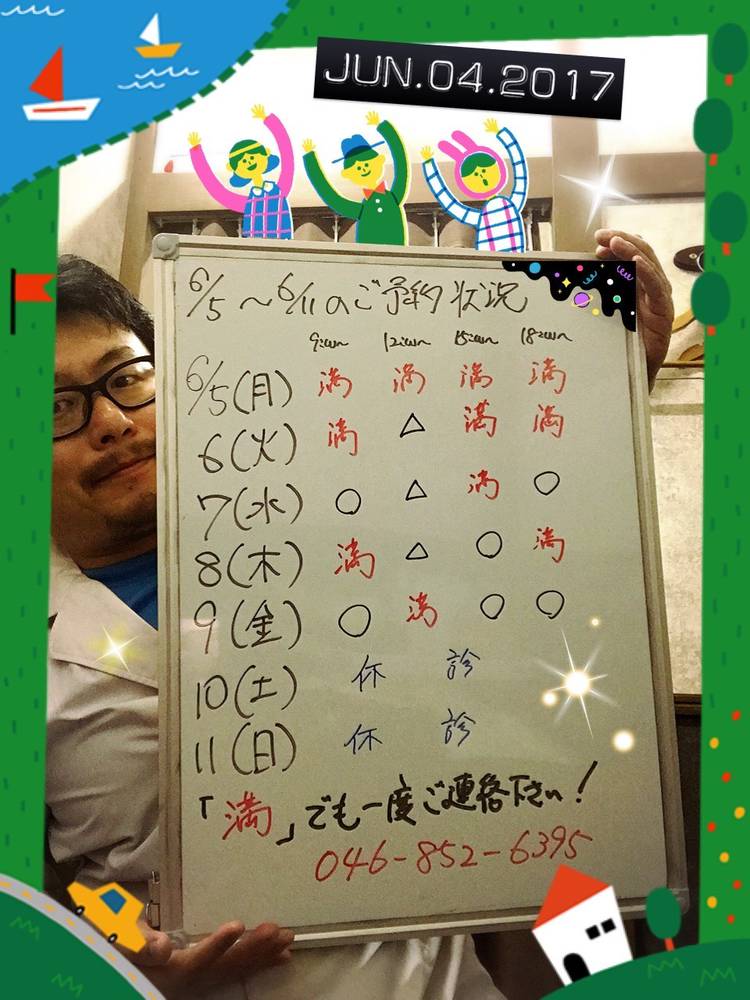 JUN.04.2017
6/5~6/11のご予約状況
9:00~ 12:00~ 15:00~ 18:00~
6/5(月) 満 満 満 満
6(火) 満 △ 満 満
7(水) ○ △ 満 ○
8(木) 満 △ ○ 満
9(金) ○ 満 ○ ○
10(土) 休 診
11(日) 休 診
「満」でも一度ご連絡下さい!
046-852-6395